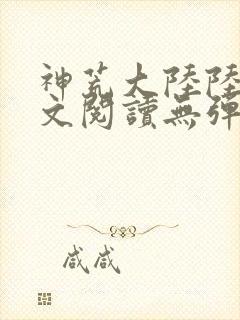 神荒大陸陸
文閱讀無彈
咸咸